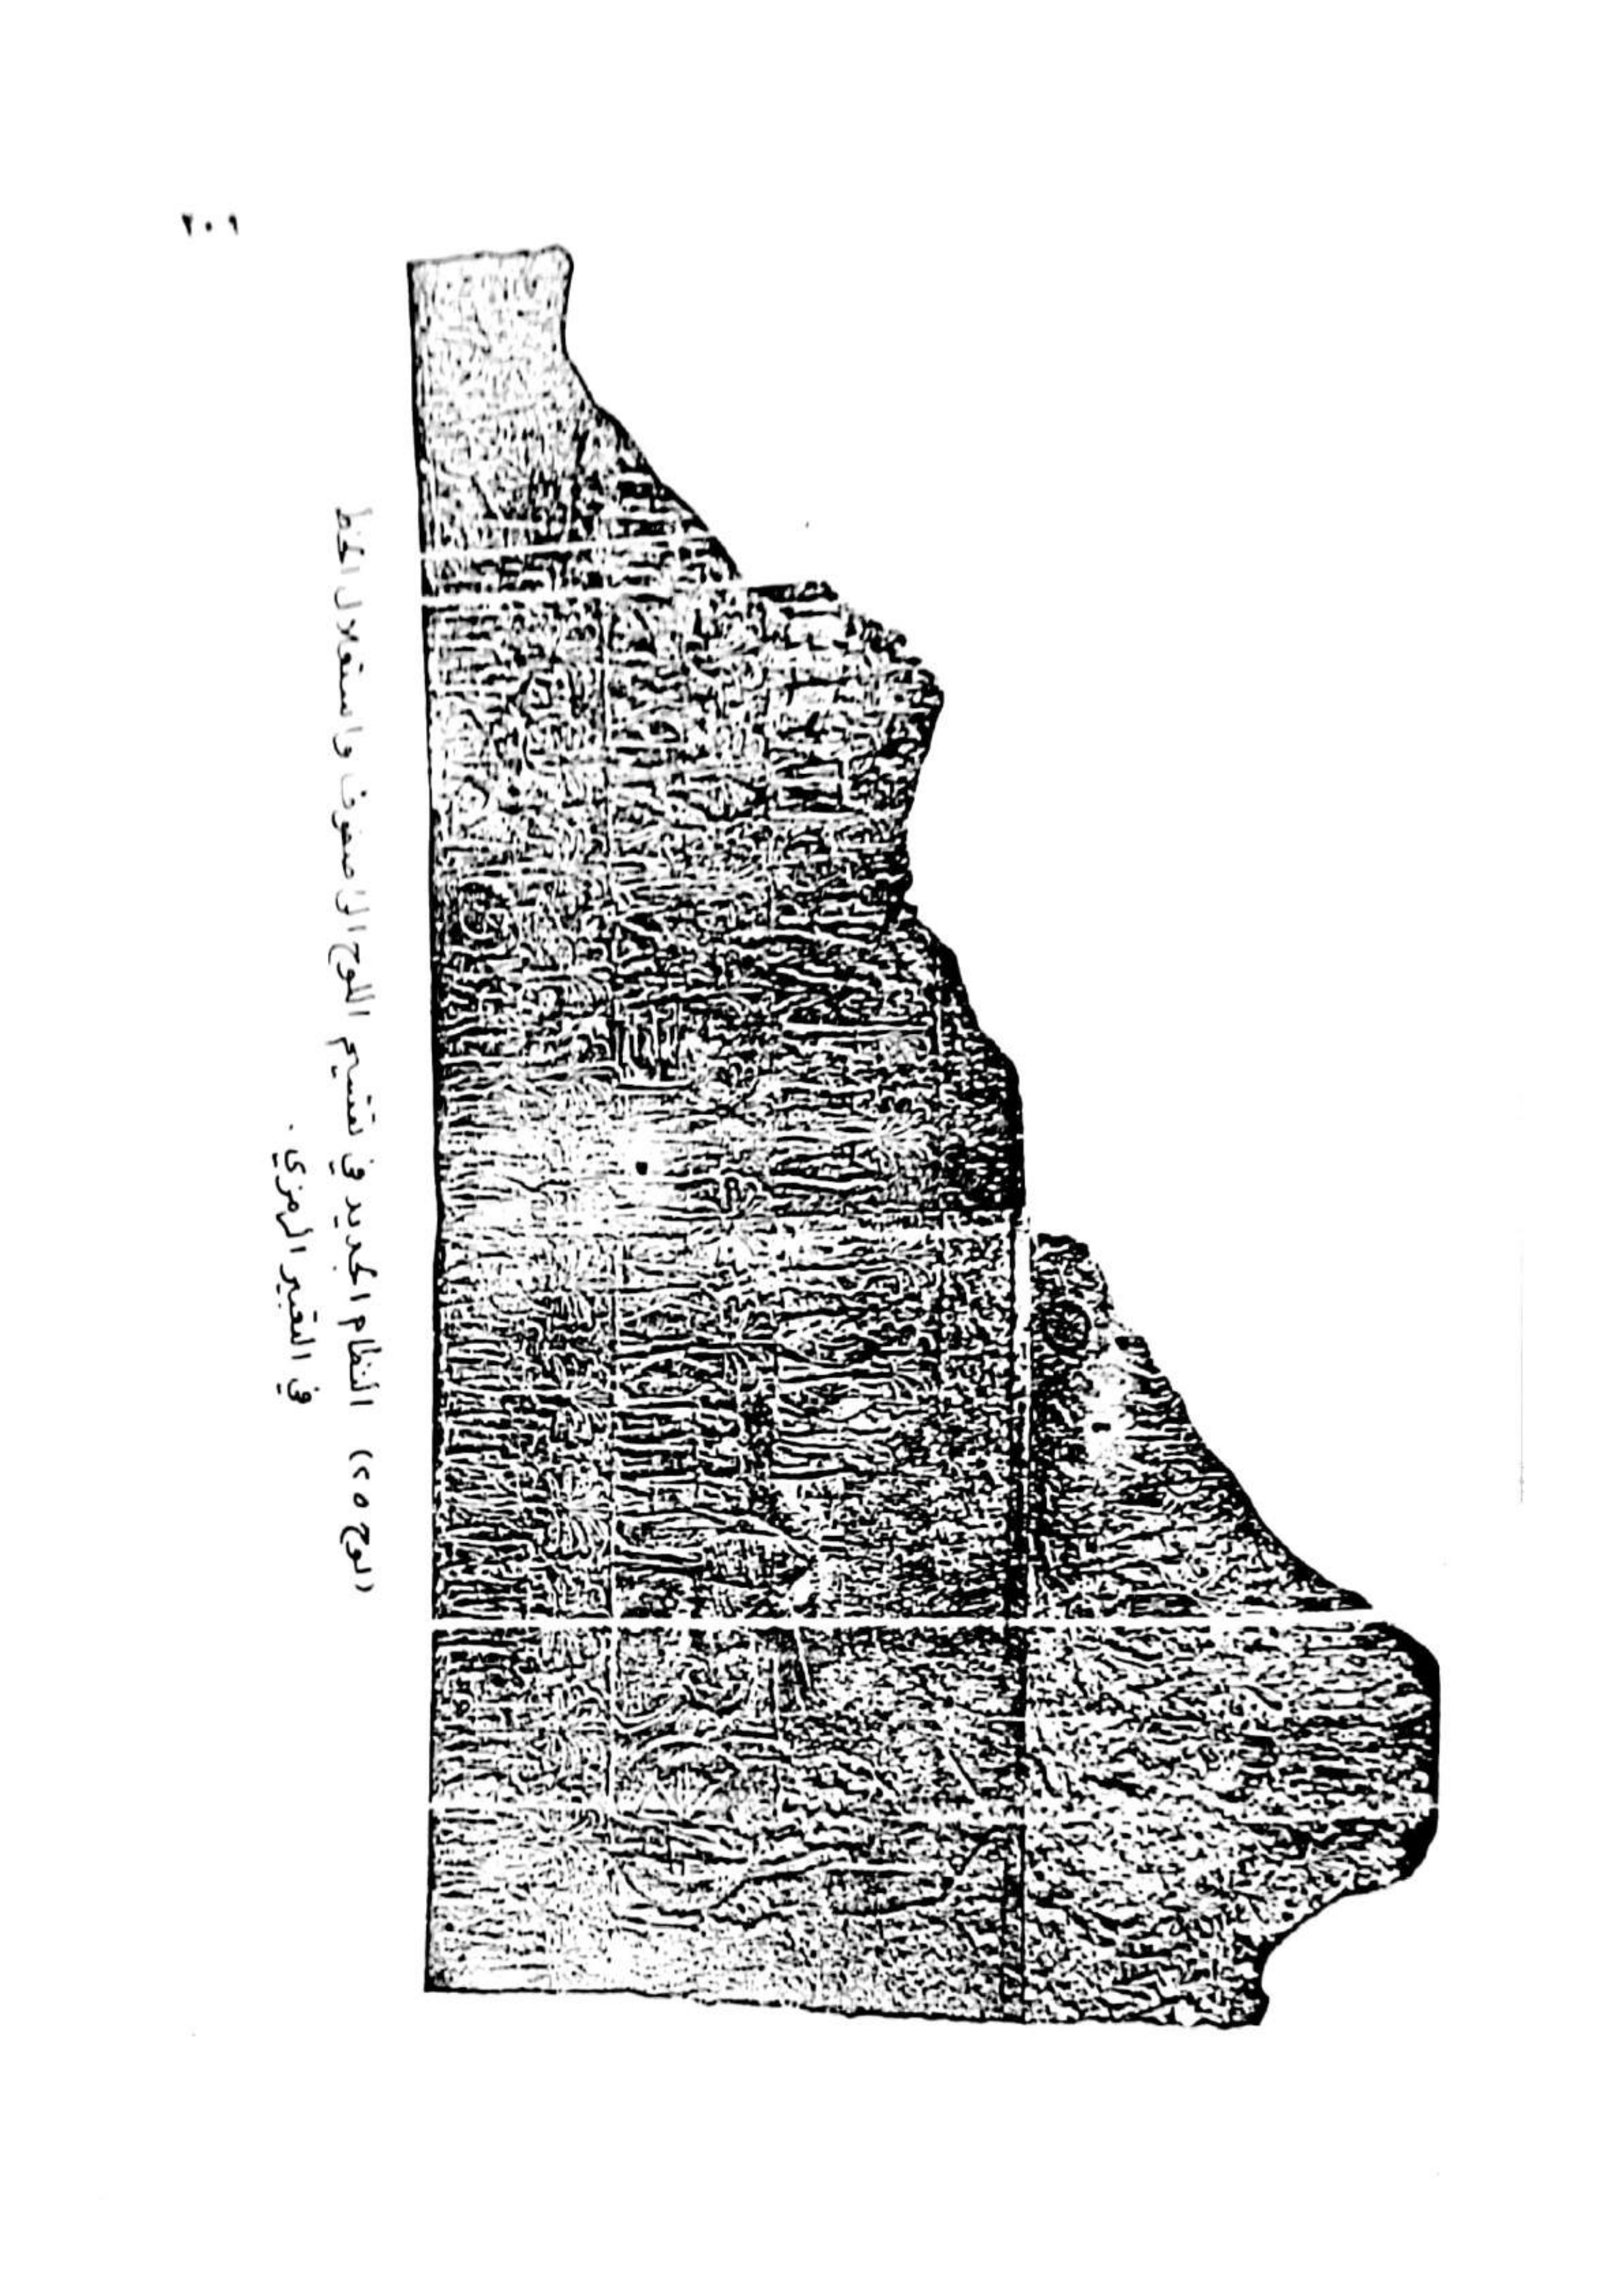 ٢٠١
(لوح ٢٥) النظام الجديد في تقسيم اللوح إلى صفوف واستقلال الخط
في التعبير الرمزي.